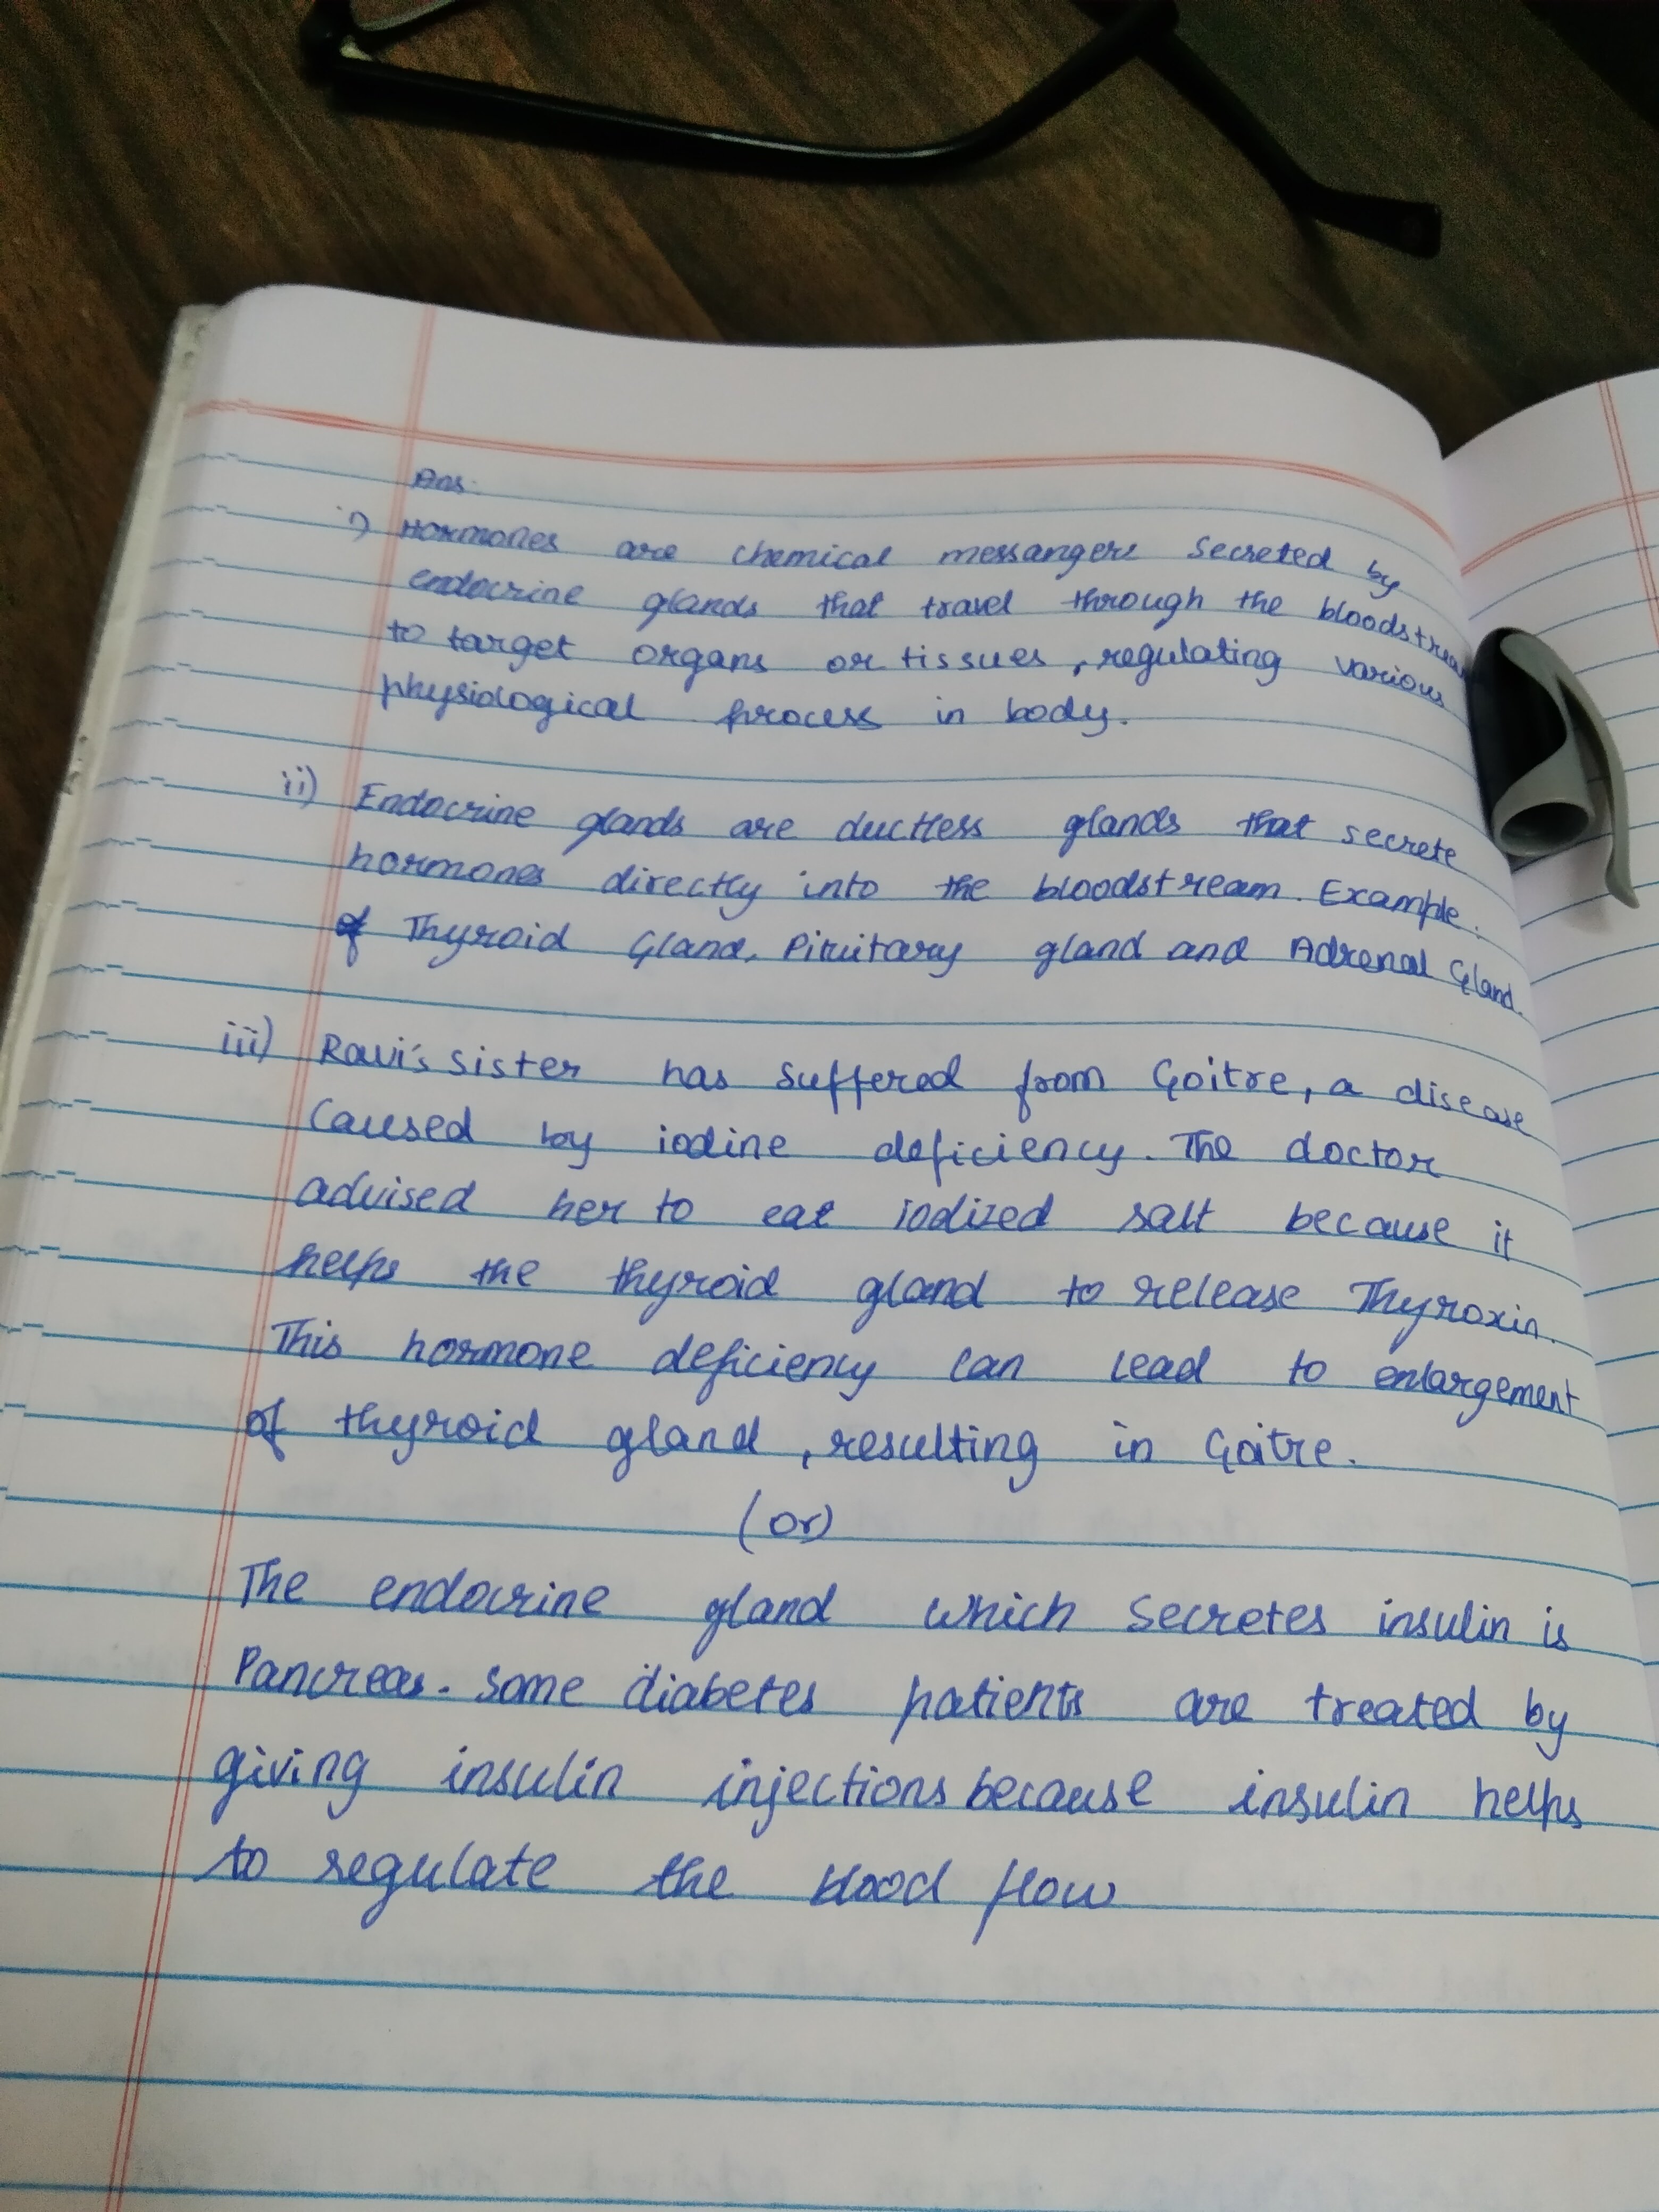 Ans:
i) Hormones are chemical messangers secreted by
endocrine glands that travel through the bloodstream
to target organs or tissues, regulating various
physiological process in body.
ii) Endocrine glands are ductless glands that secrete
hormones directly into the bloodstream. Example.
of Thyroid Gland, Pituitary gland and Adrenal Gland.
iii) Ravi's sister has suffered from Goitre, a disease
caused by iodine deficiency. The doctor
advised her to eat iodized salt because it
helps the thyroid gland to release Thyroxin.
This hormone deficiency can lead to enlargement
of thyroid gland, resulting in Goitre.
(or)
The endocrine gland which secretes insulin is
Pancreas. Some diabetes patients are treated by
giving insulin injections because insulin helps
to regulate the blood flow